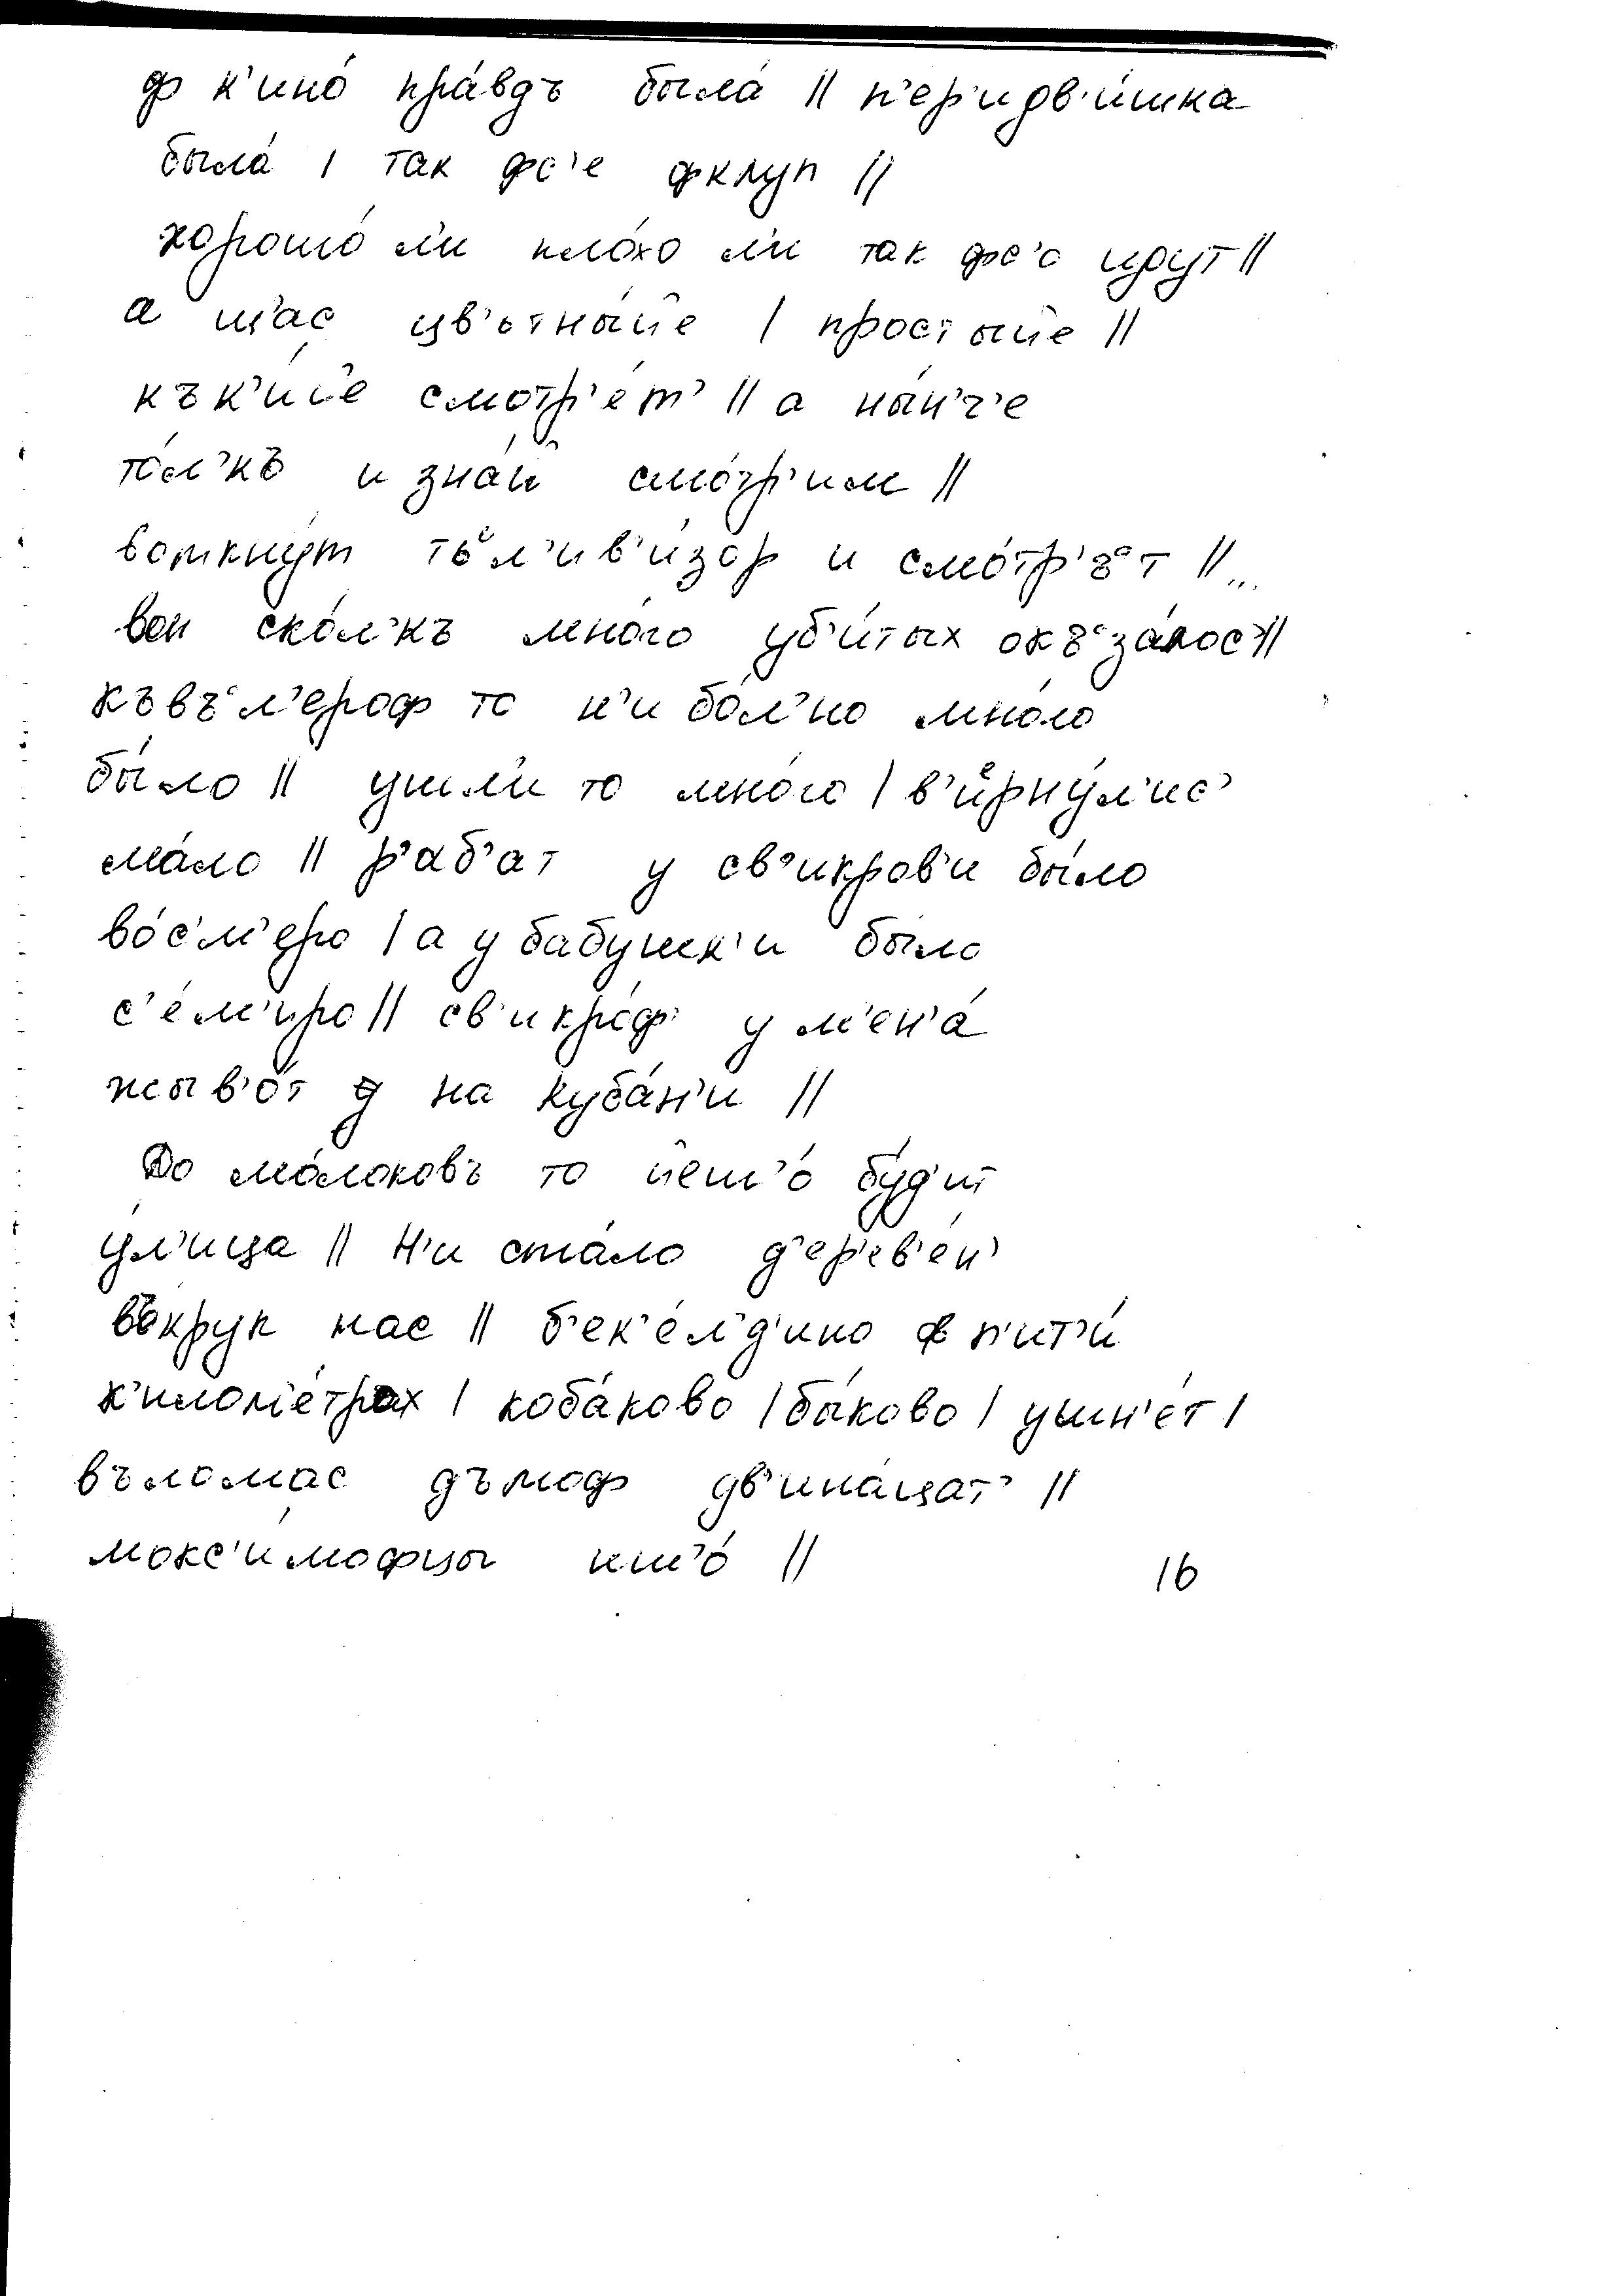 ф к'ино́ пра́вдъ была́ || п'ер'идв'и́шка
была́ | так фс'е фклуп ||
хорошо́ л'и пло́хо л'и так фс'о идут ||
а ш'ас цв'ьтны́йе | простыйе ||
къ к'и́йе смотр'е́т' || а ны́н'ч'е
то́л'къ и зна́й смо́тр'им ||
воткну́т тъ̊л'ив'и́зор и смо́тр'ъ°т || ...
вон ско́л'къ мно́го уб'и́тых окъ°за́лос' ||
къвъ°л'ероф то н'и бо́л'но мно́го
бы́ло || ушл'и́ то мно́го | в'иᵉрну́л'ис'
ма́ло || р'аб'ат у св'икров'и бы́ло
во́с'м'еро | а у бабушк'и бы́ло
с'е́м'иро || св'икро́ф' у м'ен'а́
жыв'о́т на куба́н'и ||
До мо́локовъ то йеш'о́ бу́д'ит
у́л'ица || Н'и ста́ло д'ер'ев'е́н'
въкруп нас || б'ек'е́л'д'ино ф п'ит'и́
к'илом'е́трах | коба́ково | бы́ково | ушн'е́т |
въломас дъмоф дв'ина́цат' ||
мокс'и́мофцы иш'о́ ||
16